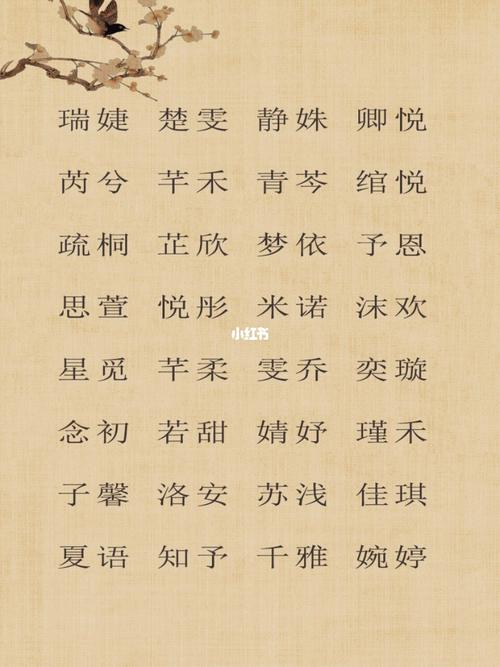 瑞婕 楚雯 静姝 卿悦
芮兮 芊禾 青芩 绾悦
疏桐 芷欣 梦依 予恩
思萱 悦彤 米诺 沫欢
小红书
星觅 芊柔 雯乔 奕璇
念初 若甜 婧妤 瑾禾
子馨 洛安 苏浅 佳琪
夏语 知予 千雅 婉婷